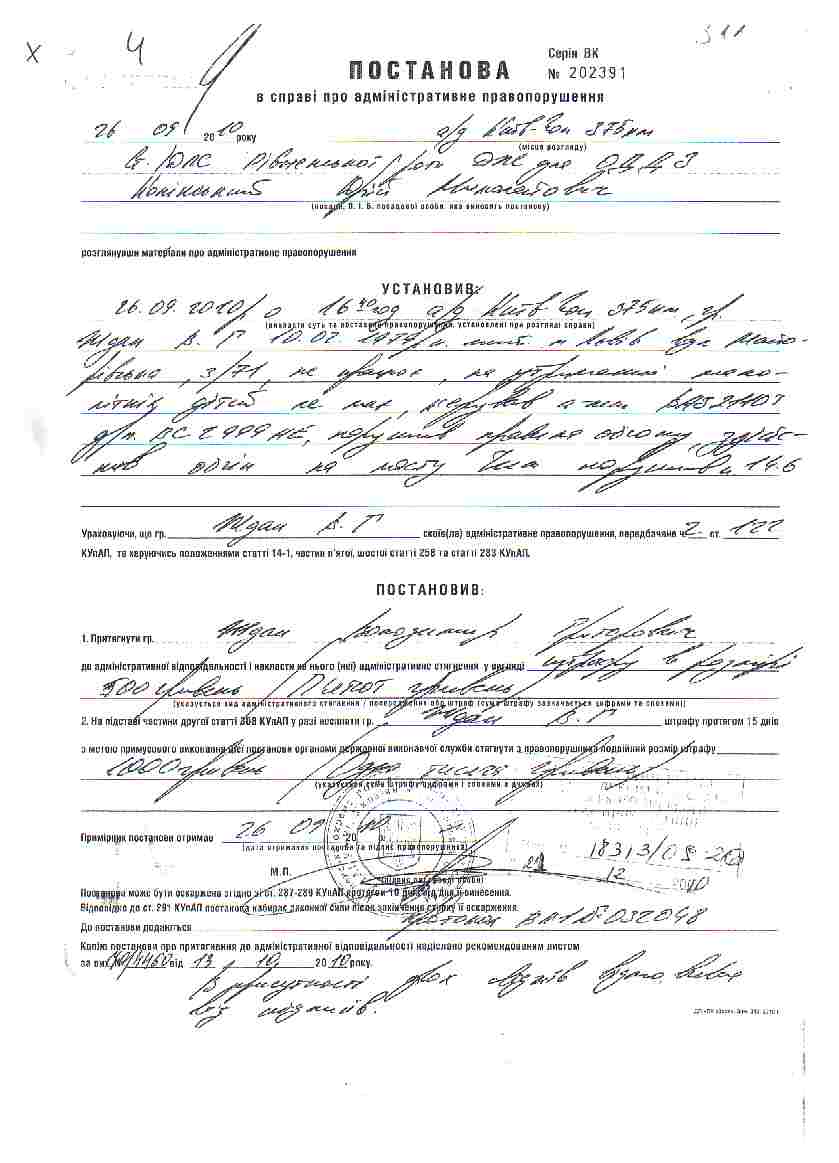 Х Ч 311
ПОСТАНОВА
Серія ВК
№ 202391
в справі про адміністративне правопорушення
26 09 2010 року а/д Київ-Чоп 375 км
(місце розгляду)
ДПС Рівненської роти ДПС для
Юрій
(посада, П. І. Б. посадової особи, яка виносить постанову)
розглянувши матеріали про адміністративне правопорушення
УСТАНОВИВ:
26.09.2010р о 16 40 год а/д Київ-Чоп 375 км, гр.
(викласти суть та обставини правопорушення, установлені при розгляді справи)
Ждан В. Г 10.02.1979 м Львів вул
3/71, не працює, на утриманні мало-
літніх дітей не має, керував а-лем ВАЗ 21107
д/н ВС 2999 НЕ, порушив правила обгону, здійс-
нив обгін на мосту порушив п 14.6
Ураховуючи, що гр. Ждан В. Г скоїв(ла) адміністративне правопорушення, передбачене ч. 2 ст. 122
КУпАП, та керуючись положеннями статті 14-1, частин п'ятої, шостої статті 258 та статті 283 КУпАП,
ПОСТАНОВИВ:
1. Притягнути гр. Ждан Володимир Григорович
до адміністративної відповідальності і накласти на нього (неї) адміністративне стягнення у вигляді штрафу в розмірі
500 гривень П'ятсот гривень
(указується вид адміністративного стягнення / попередження або штраф (сума штрафу зазначається цифрами та словами))
2. На підставі частини другої статті 308 КУпАП у разі несплати гр. Ждан В. Г штрафу протягом 15 днів
з метою примусового виконання цієї постанови органами державної виконавчої служби стягнути з правопорушника подвійний розмір штрафу
1000 гривень Одна тисяча гривень
(указується сума штрафу цифрами і словами в дужках)
Примірник постанови отримав 26 09 2010 р.
(дата отримання постанови та підпис правопорушника)
18313/05-21
12 2010
М.П.
(підпис посадової особи)
Постанова може бути оскаржена згідно зі ст. 287-289 КУпАП протягом 10 днів від дня її винесення.
Відповідно до ст. 291 КУпАП постанова набирає законної сили після закінчення строку її оскарження.
До постанови додаються протокол ВА1 № 032048
Копію постанови про притягнення до адміністративної відповідальності надіслано рекомендованим листом
за вих. № 10/4460 від 13 10 2010 року.
В присутності двох свідків
без підписів.